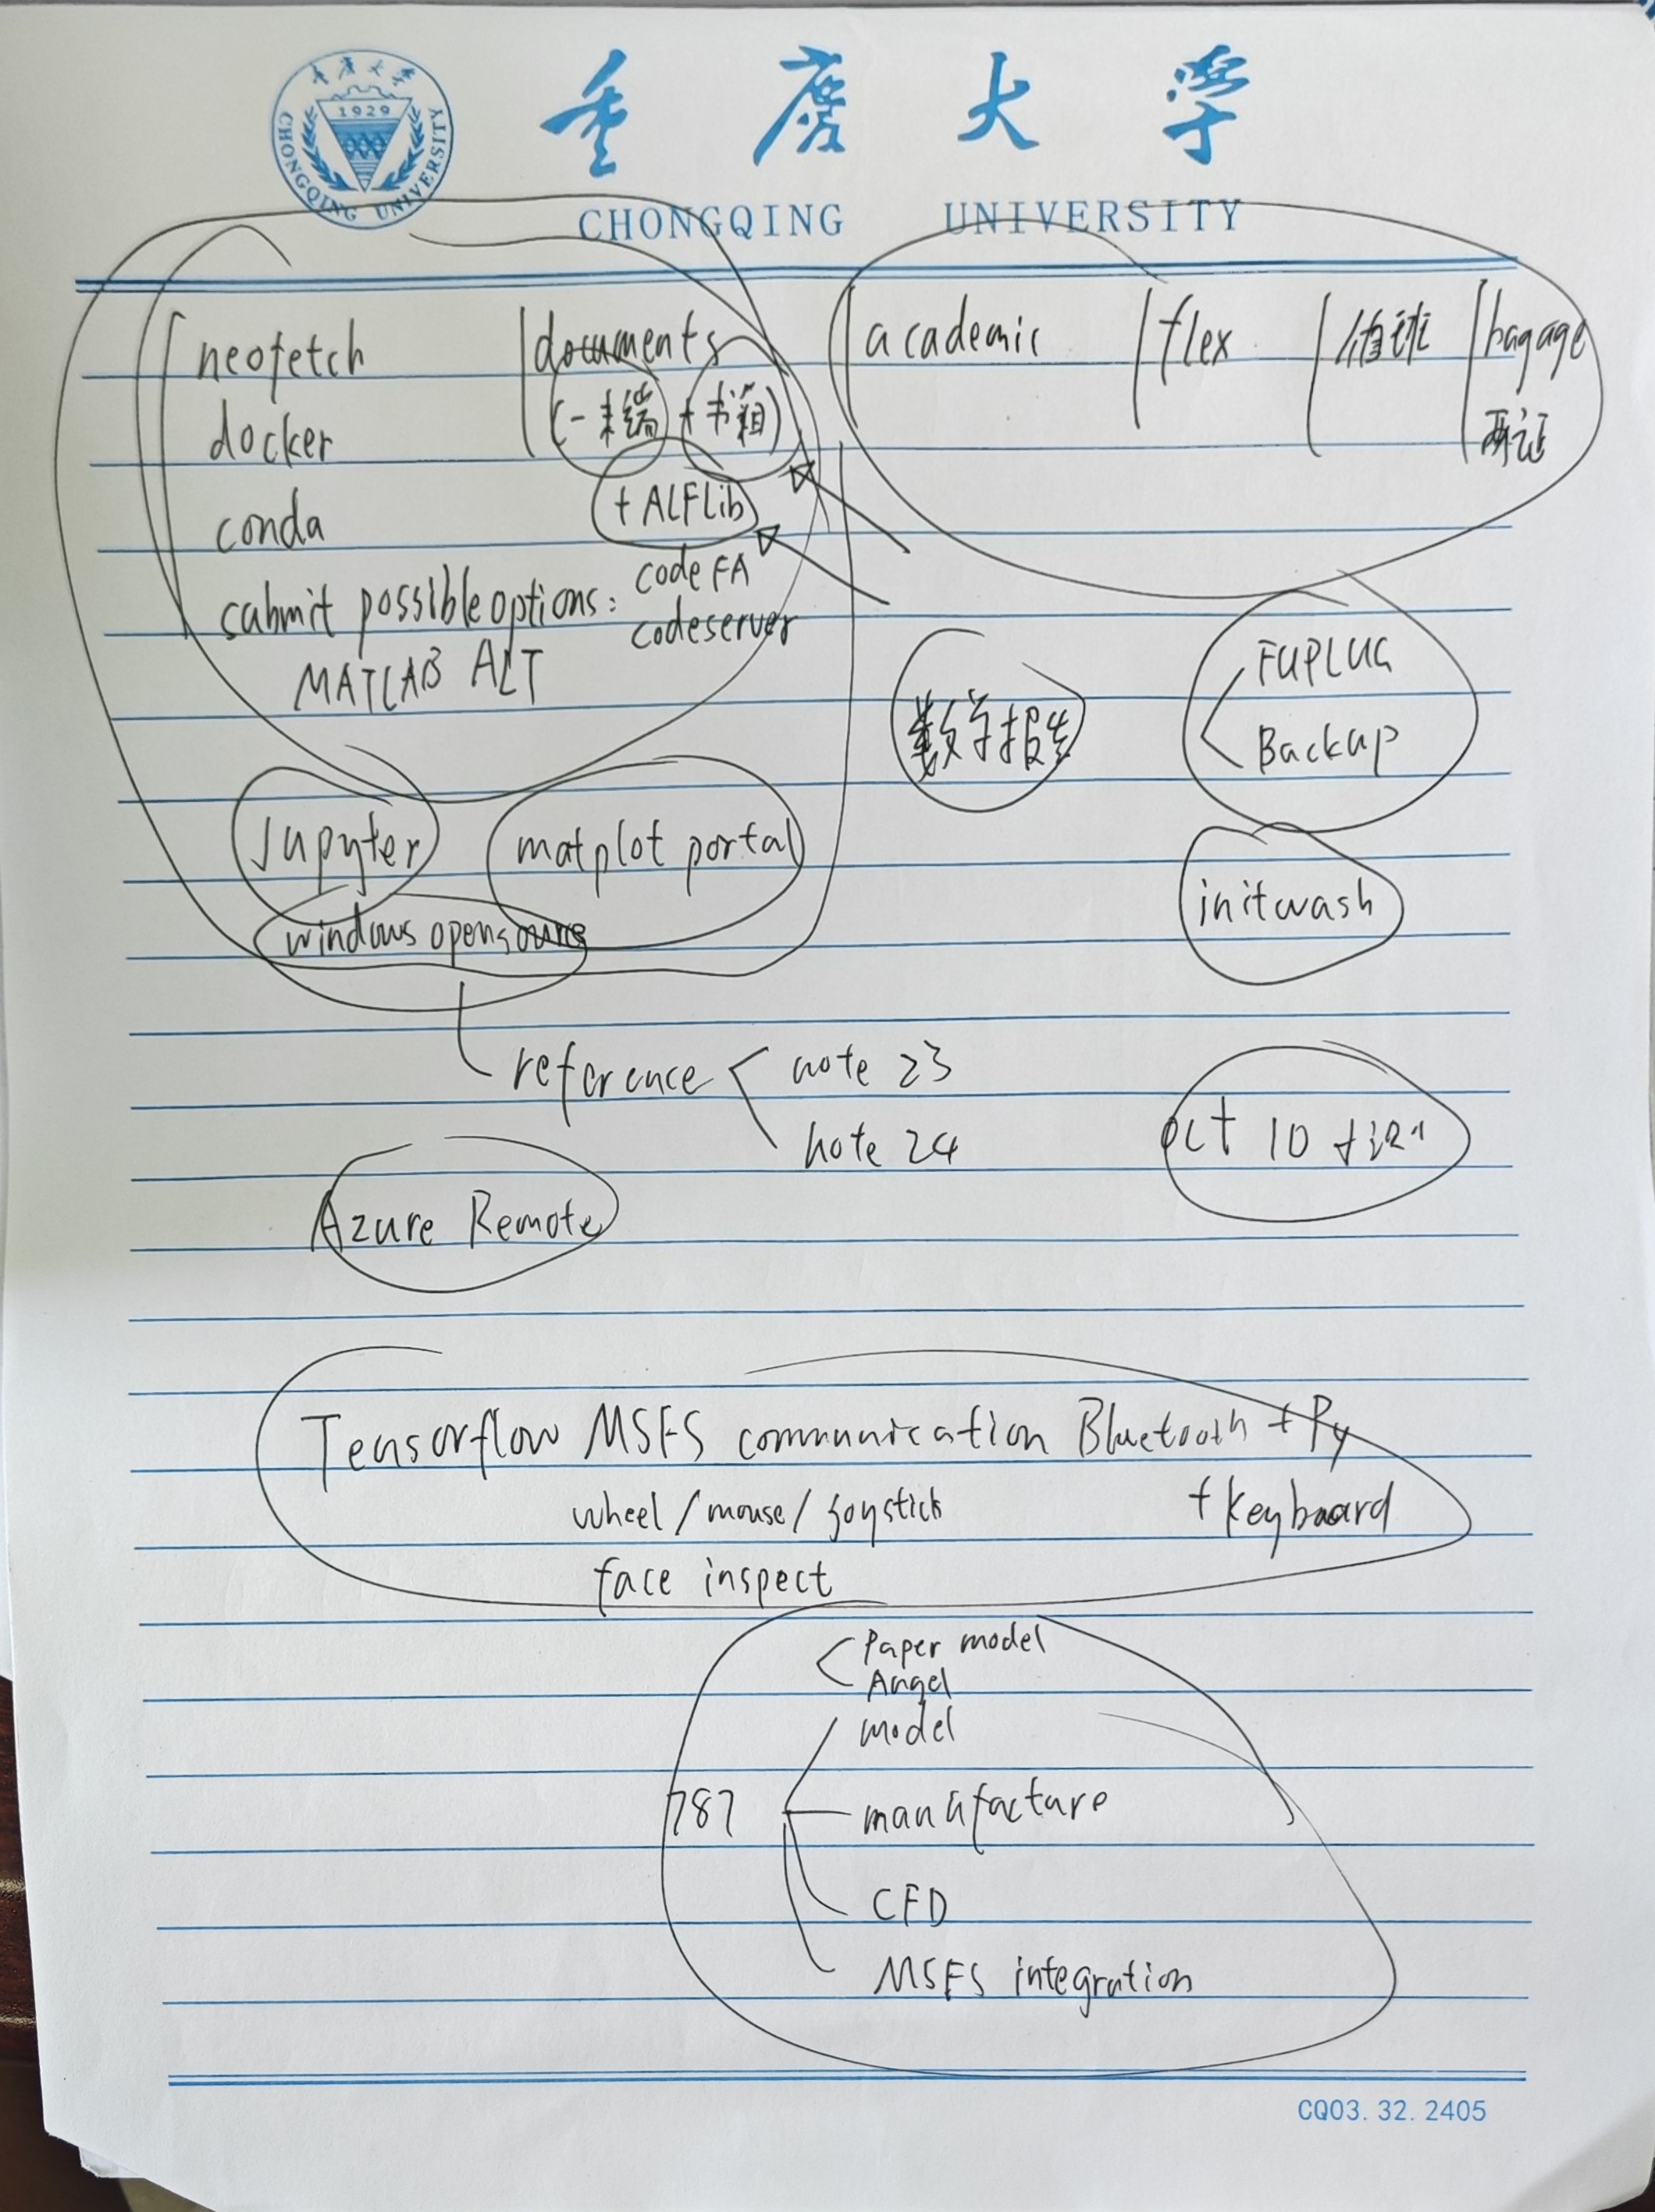 重庆大学
1929
CHONGQING UNIVERSITY
重庆大学
CHONGQING UNIVERSITY
neofetch
docker
conda
submit possible options: codeFA
codeserver
MATLAB ALT
documents
(-末端 + 书箱)
+ ALFLib
academic
flex
bagage
两证
数学报告
FUPLUG
Backup
Jupyter
matplot portal
windows opensource
initwash
reference
note 23
note 24
oct 10
Azure Remote
Tensorflow MSFS communication Bluetooth + Py
wheel / mouse / joystick
+ keyboard
face inspect
Paper model
Angel
787
model
manufacture
CFD
MSFS integration
CQ03.32.2405